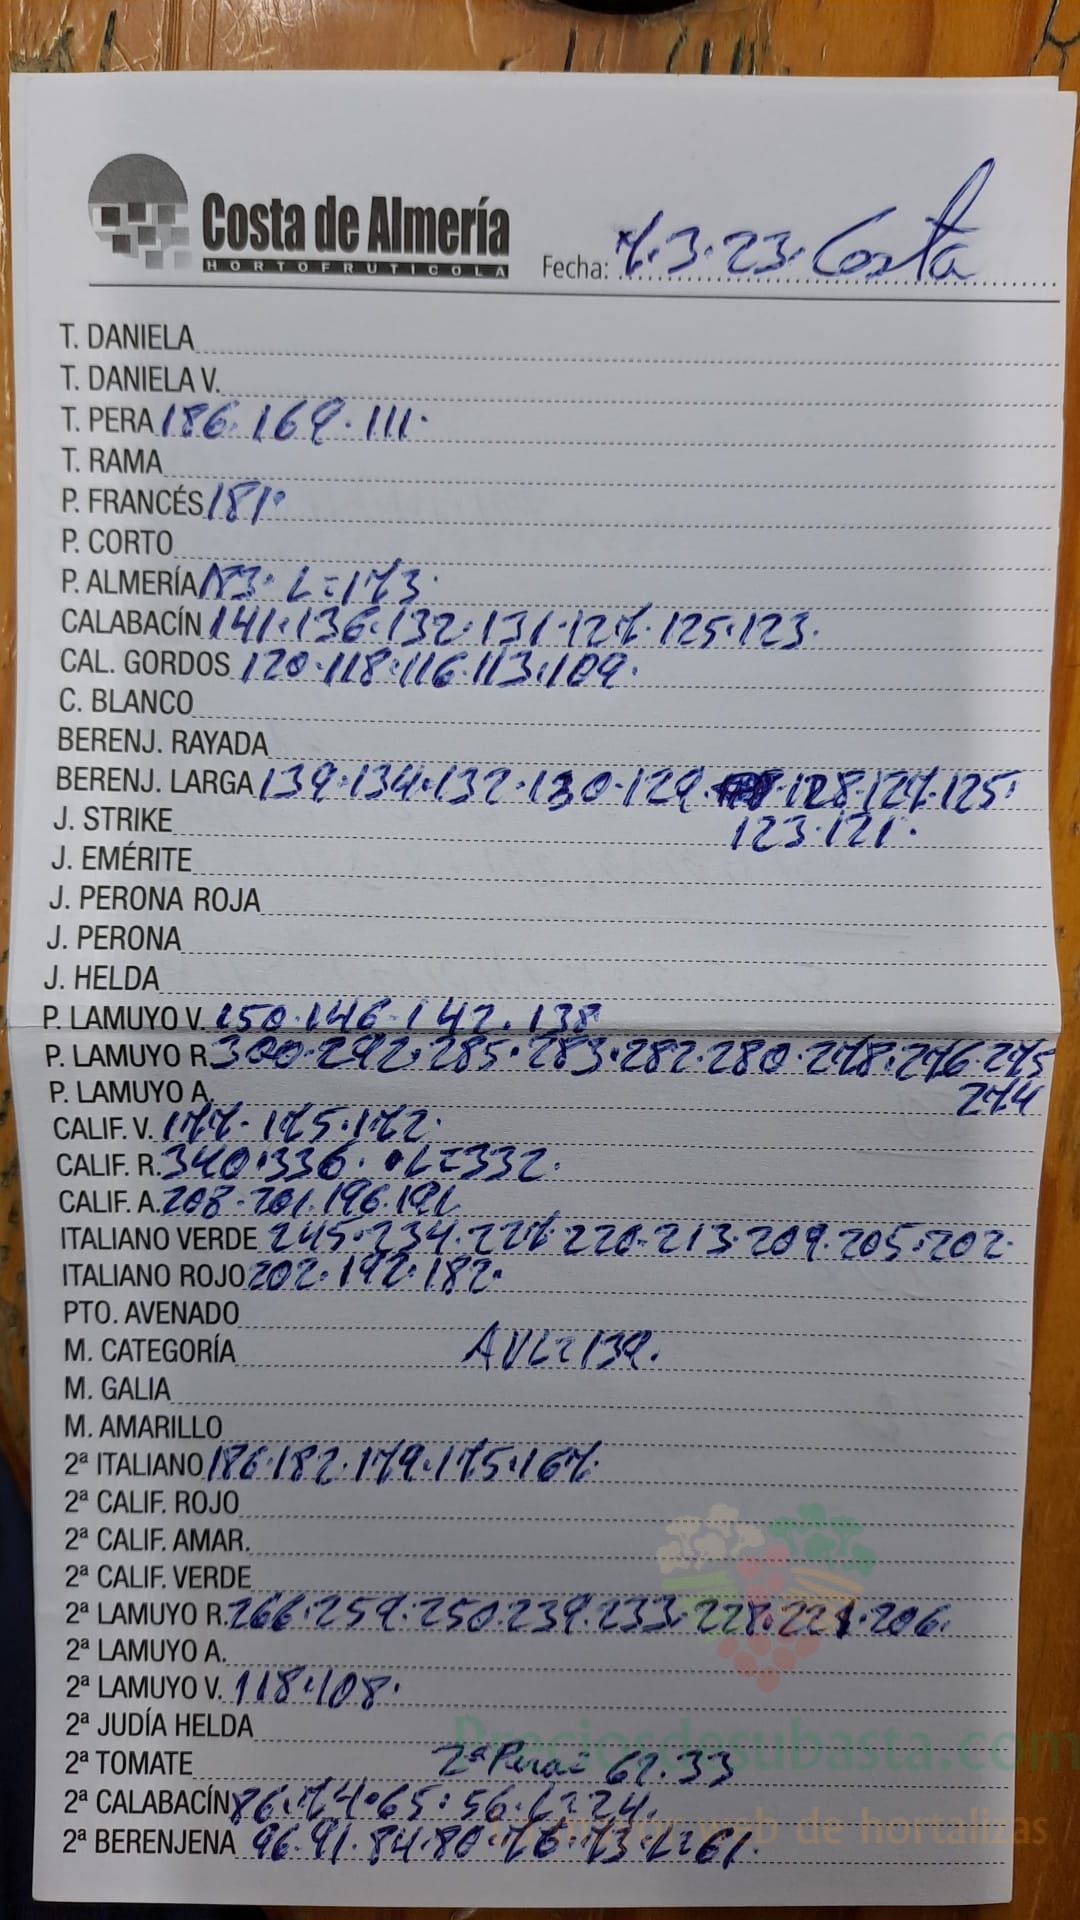 Costa de Almería
HORTOFRUTICOLA
Fecha: 7.3.23. Costa
T. DANIELA
T. DANIELA V.
T. PERA 186.169.111.
T. RAMA
P. FRANCÉS 181.
P. CORTO
P. ALMERÍA 183. L=173.
CALABACÍN 141.136.132.131.127.125.123.
CAL. GORDOS 120.118.116.113.109.
C. BLANCO
BERENJ. RAYADA
BERENJ. LARGA 139.134.132.130.129.128.127.125.
J. STRIKE 123.121.
J. EMÉRITE
J. PERONA ROJA
J. PERONA
J. HELDA
P. LAMUYO V. 150.146.142.138
P. LAMUYO R. 300.292.285.283.282.280.278.276.275
P. LAMUYO A. 274
CALIF. V. 177.175.172.
CALIF. R. 340.336. L=332.
CALIF. A. 208.201.196.191
ITALIANO VERDE 245.234.227.220.213.209.205.202.
ITALIANO ROJO 202.192.182.
PTO. AVENADO
M. CATEGORÍA AVL=139.
M. GALIA
M. AMARILLO
2ª ITALIANO 186.182.179.175.167.
2ª CALIF. ROJO
2ª CALIF. AMAR.
2ª CALIF. VERDE
2ª LAMUYO R. 266.259.250.239.233.228.221.206.
2ª LAMUYO A.
2ª LAMUYO V. 118.108.
2ª JUDÍA HELDA
Preciosdesubasta.com
2ª TOMATE 2ª Pera= 61.33
2ª CALABACÍN 86.74.65.56.L=24.
web de hortalizas
2ª BERENJENA 96.91.84.80.76.73.L=61.